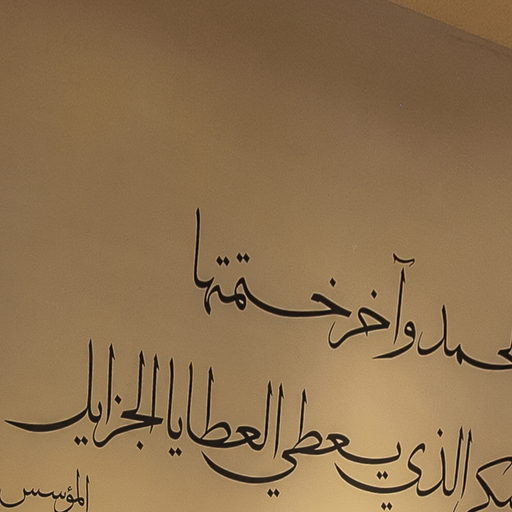 لحمد وآخر ختمتها
شكر الذي يعطي العطايا الجزايل
المؤسس